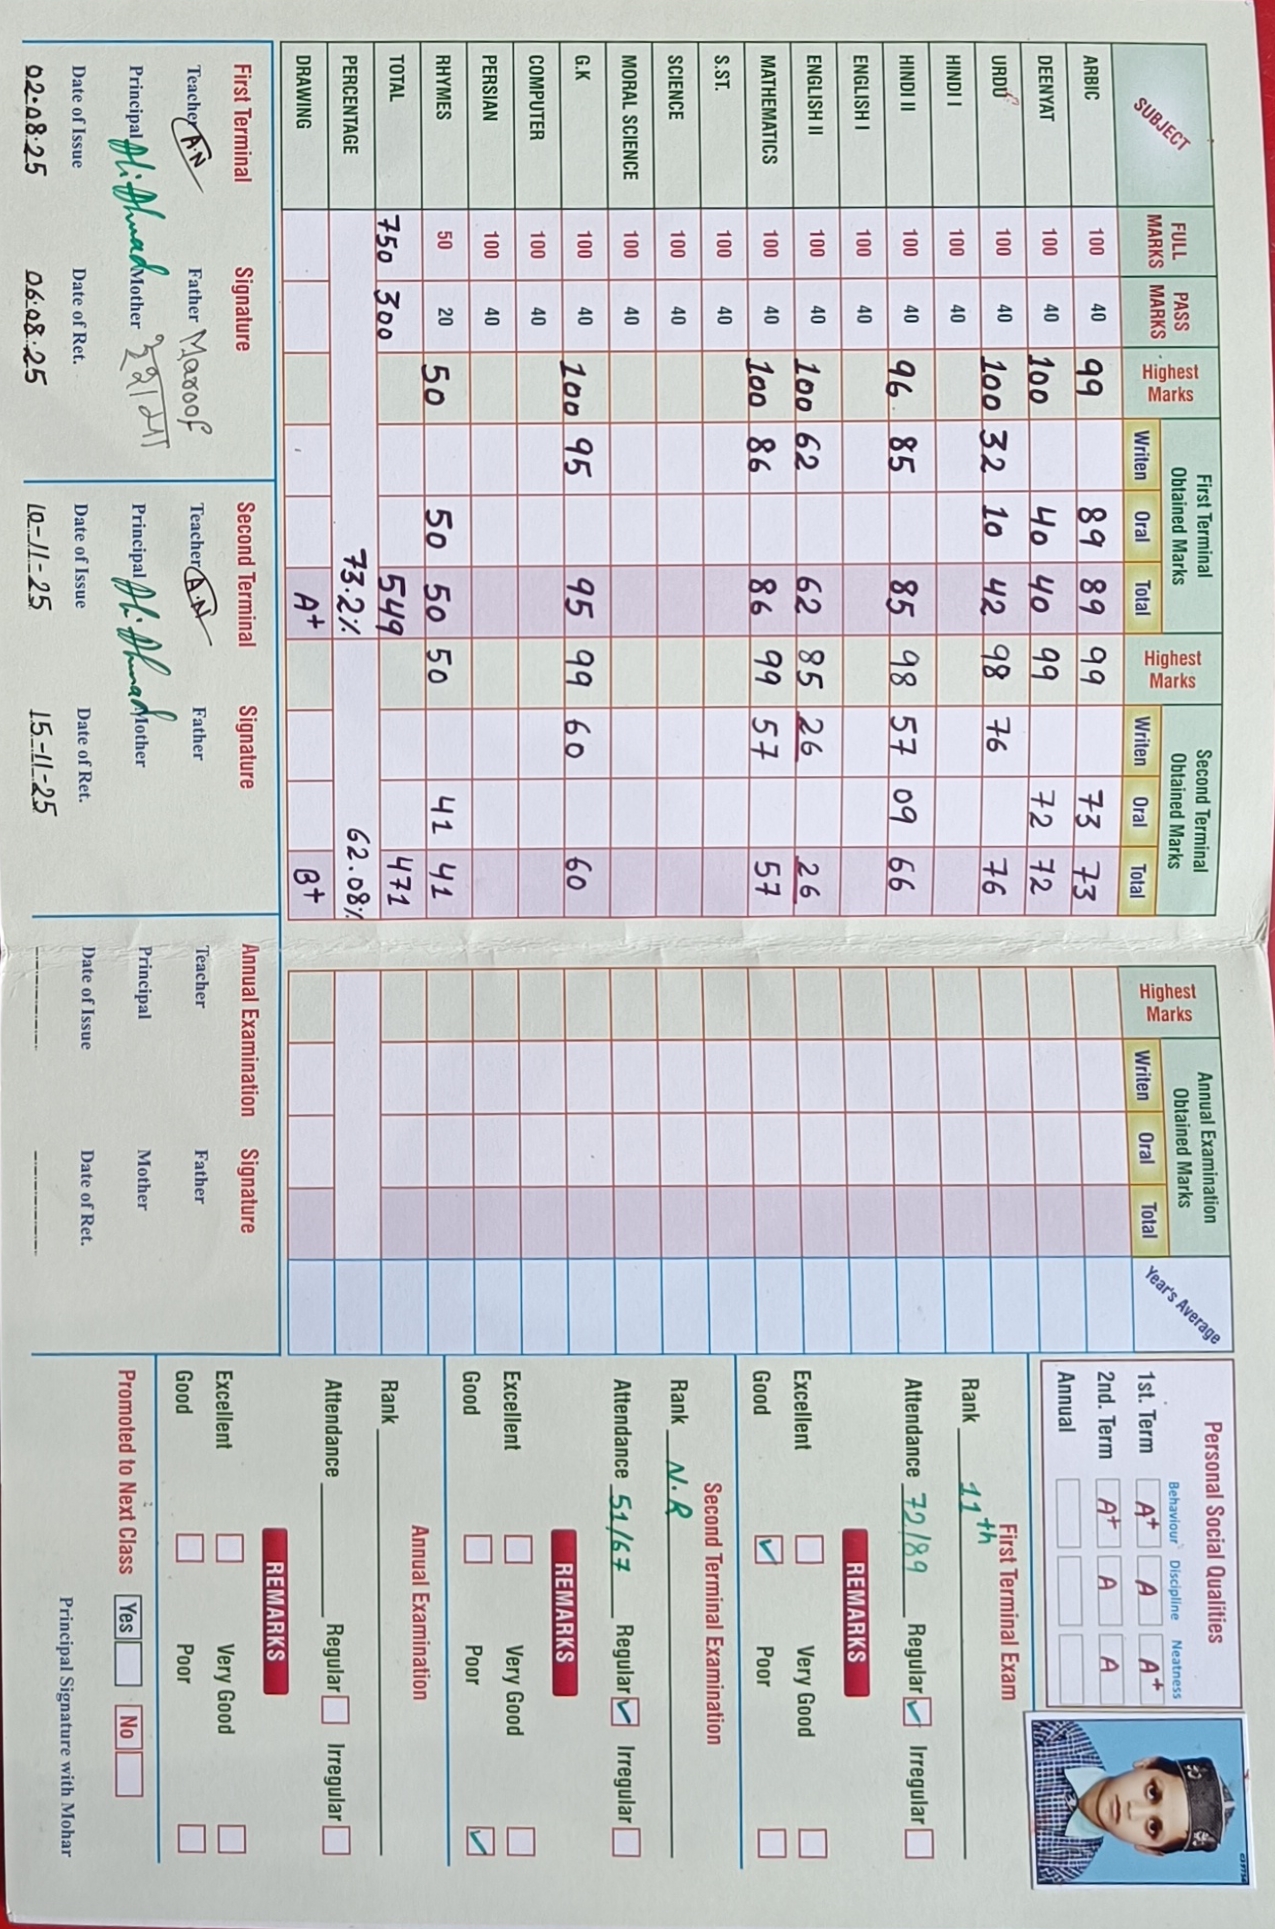 SUBJECT FULL MARKS PASS MARKS Highest Marks First Terminal Obtained Marks Writen Oral Total Highest Marks Second Terminal Obtained Marks Writen Oral Total Highest Marks Annual Examination Obtained Marks Writen Oral Total Year's Average
ARBIC 100 40 99 89 89 99 73 73
DEENYAT 100 40 100 40 40 99 72 72
URDU 100 40 100 32 10 42 98 76 76
HINDI I 100 40
HINDI II 100 40 96 85 85 98 57 09 66
ENGLISH I 100 40
ENGLISH II 100 40 100 62 62 85 26 26
MATHEMATICS 100 40 100 86 86 99 57 57
S.ST. 100 40
SCIENCE 100 40
MORAL SCIENCE 100 40
G.K 100 40 100 95 95 99 60 60
COMPUTER 100 40
PERSIAN 100 40
RHYMES 50 20 50 50 50 50 41 41
TOTAL 750 300 549 471
PERCENTAGE 73.2% 62.08%
DRAWING A+ B+
First Terminal Signature
Teacher A.N Father Maroof
Principal Ali Ahmad Mother
Date of Issue Date of Ret.
02.08.25 06.08.25
Second Terminal Signature
Teacher A.N Father
Principal Ali Ahmad Mother
Date of Issue Date of Ret.
10-11-25 15-11-25
Annual Examination Signature
Teacher Father
Principal Mother
Date of Issue Date of Ret.
Personal Social Qualities
Behaviour Discipline Neatness
1st. Term A+ A A+
2nd. Term A+ A A
Annual
First Terminal Exam
Rank 11th
Attendance 72/89 Regular Irregular
REMARKS
Excellent Very Good
Good Poor
Second Terminal Examination
Rank N.R
Attendance 51/67 Regular Irregular
REMARKS
Excellent Very Good
Good Poor
Annual Examination
Rank
Attendance Regular Irregular
REMARKS
Excellent Very Good
Good Poor
Promoted to Next Class Yes No
Principal Signature with Mohar